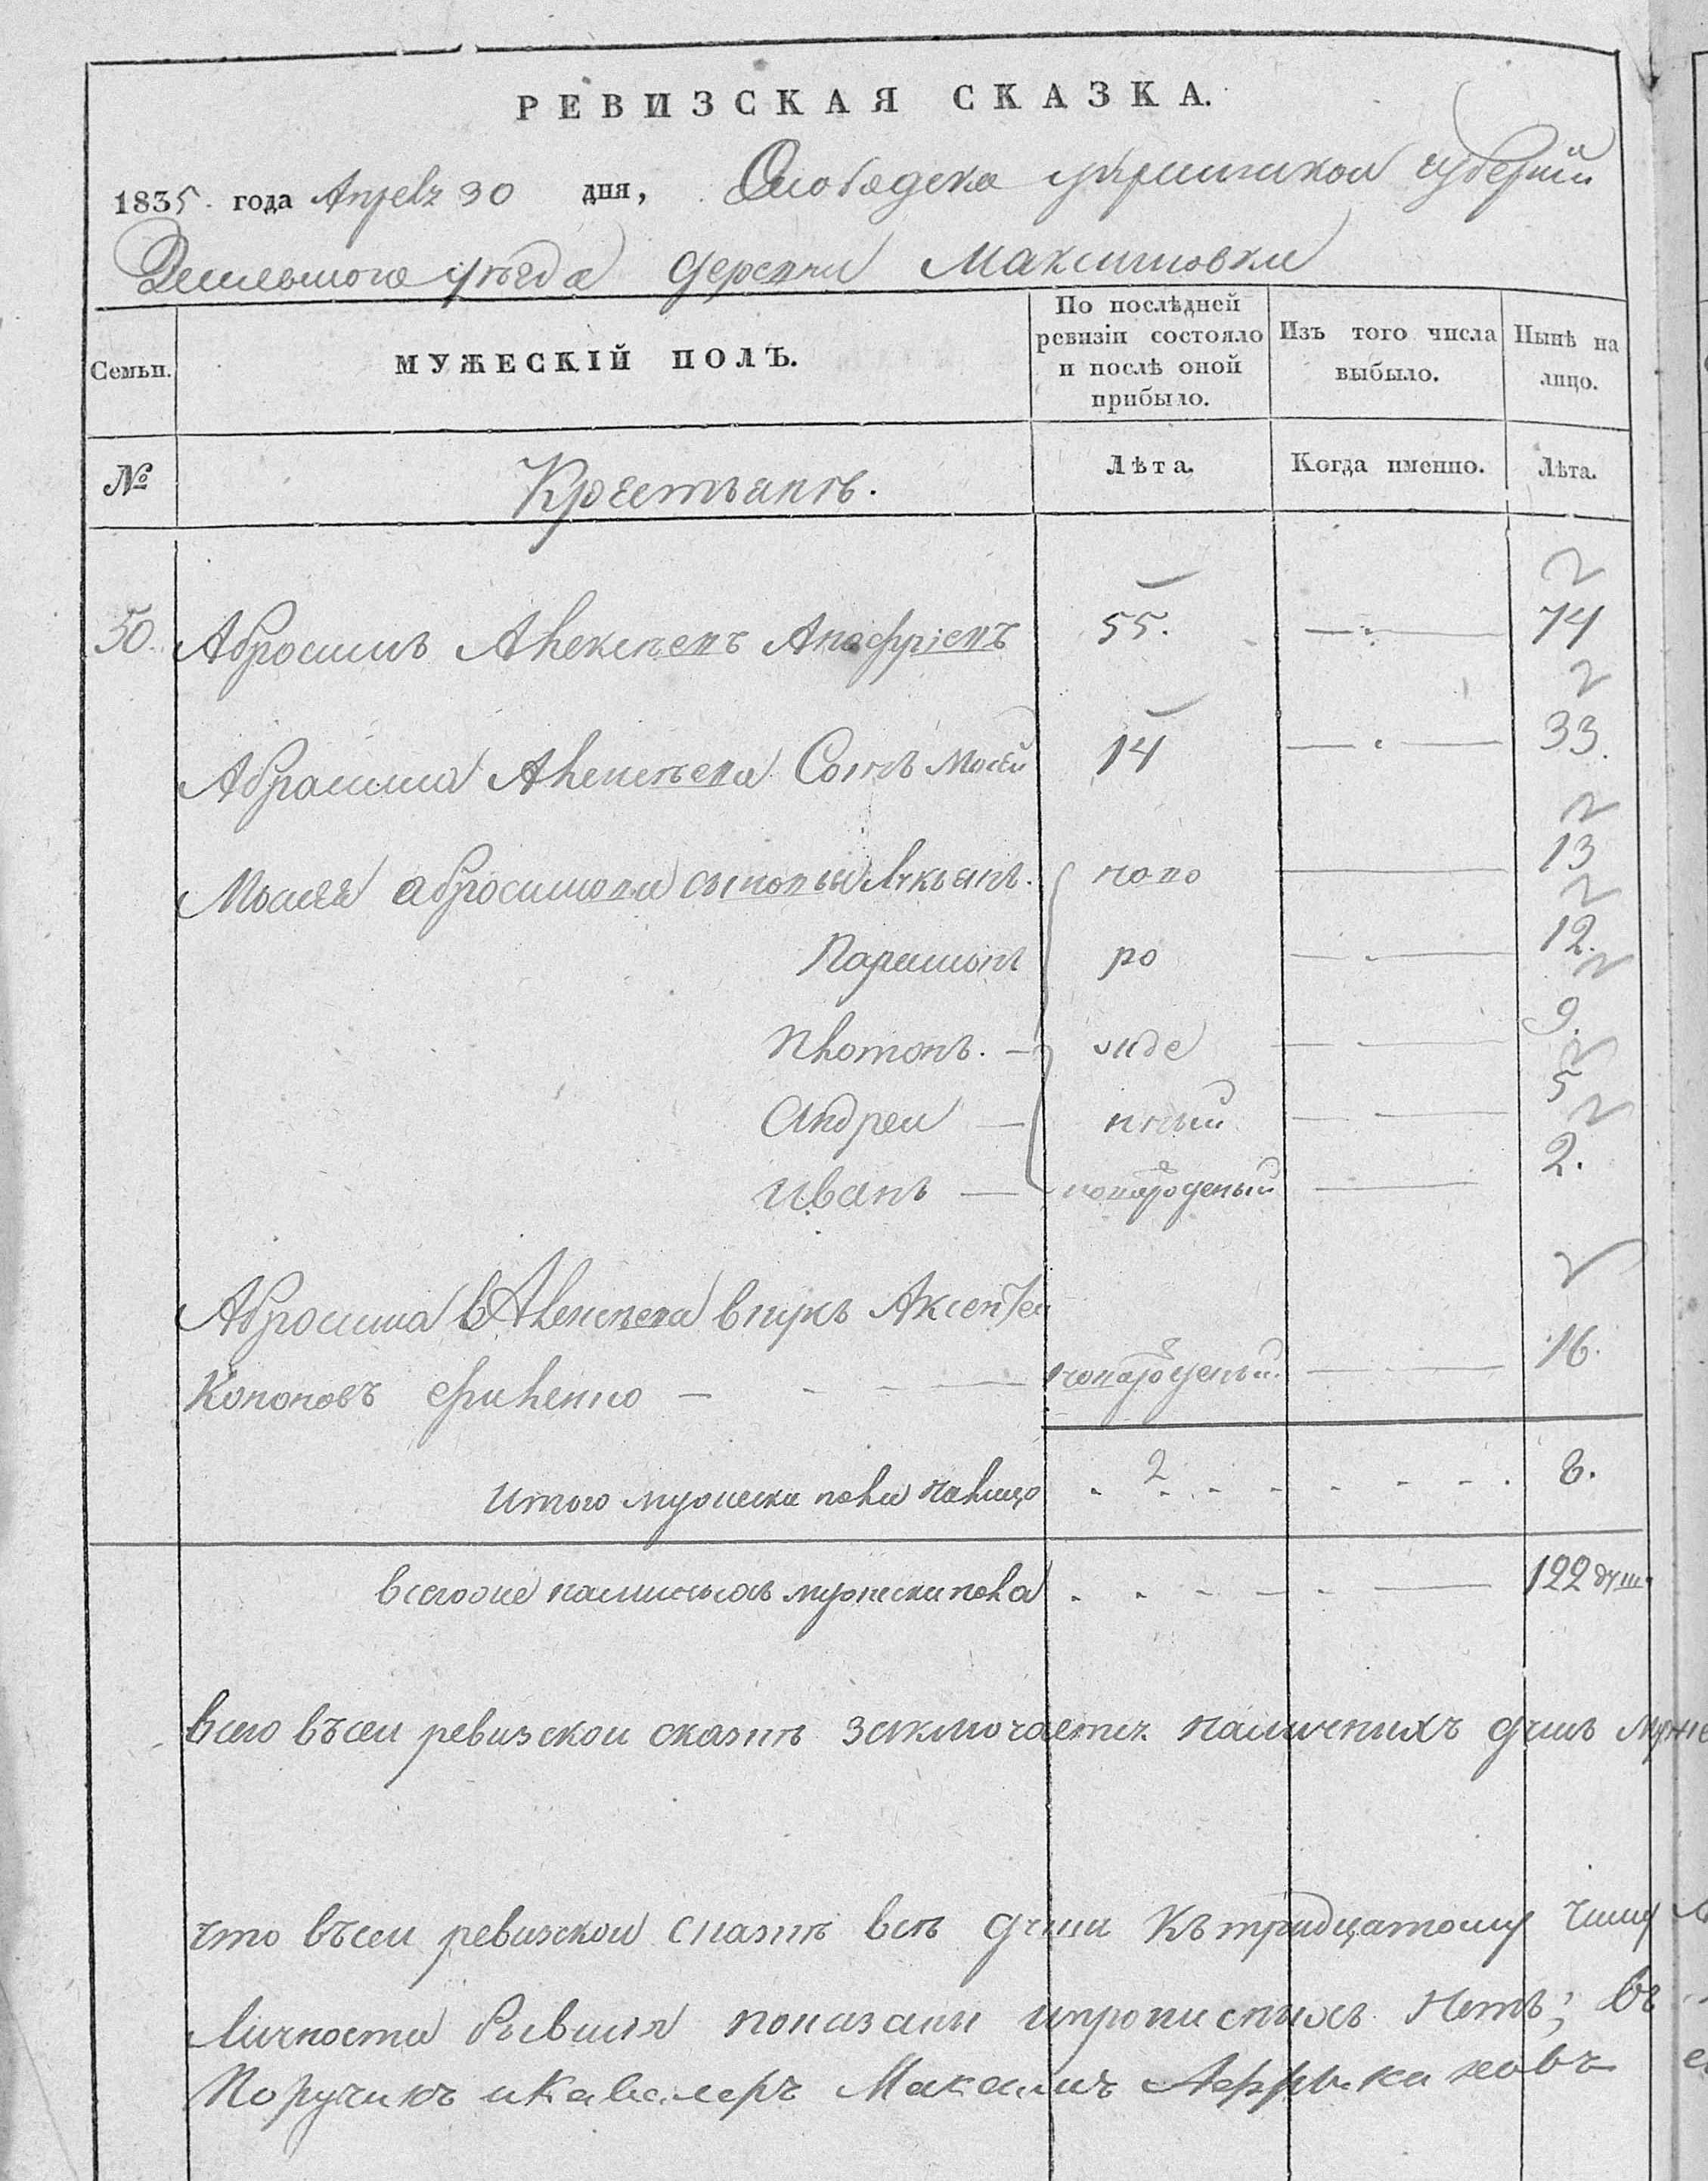 РЕВИЗСКАЯ СКАЗКА.
1835. года Апреля 30 дня, Слободска украинской губернии
уезда деревни Максимовки
Семьи.
МУЖЕСКІЙ ПОЛЪ.
По послѣдней ревизіи состояло и послѣ оной прибыло.
Изъ того числа выбыло.
Нынѣ на лицо.
№
Крестьянъ.
Лѣта.
Когда именно.
Лѣта.
50. Абросимъ Алексѣевъ 55. 74
Абросима Алексѣева Сынъ Мосей 14 33.
Мосея абросимова сыновья Лукьянъ. ново 13
Парамонъ ро 12.
Платонъ. жде 9.
Андреи нный 5
Иванъ новорожденый 2.
Абросима Алексѣева внукъ Аксентей 16.
Кононовъ новорожденый
Итого мужеска пола налицо 2 8.
всегоже наличныхъ мужеска пола 122 душ.
всего въсеи ревизской сказкѣ заключается наличнихъ душъ муже
что въсеи ревизской сказкѣ всѣ души къ тридцатому числу
личности бывшия показани ипрописныхъ нетъ; въ
Поручикъ икавалеръ Максимъ